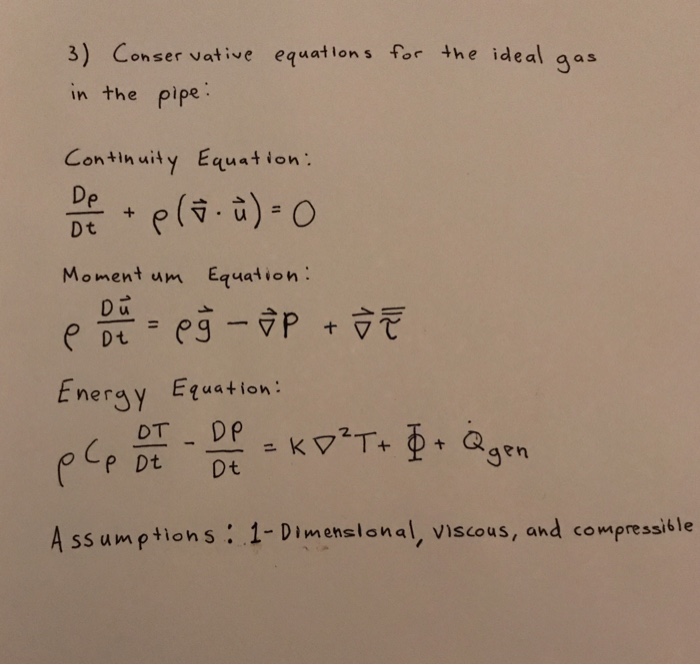 3) Conservative equations for the ideal gas
in the pipe:
Continuity Equation:
Dρ/Dt + ρ(∇⃗ · u⃗) = 0
Momentum Equation:
ρ Du⃗/Dt = ρg⃗ - ∇⃗P + ∇⃗τ̿
Energy Equation:
ρCp DT/Dt - DP/Dt = K∇²T + Φ + Q̇gen
Assumptions: 1-Dimensional, viscous, and compressible